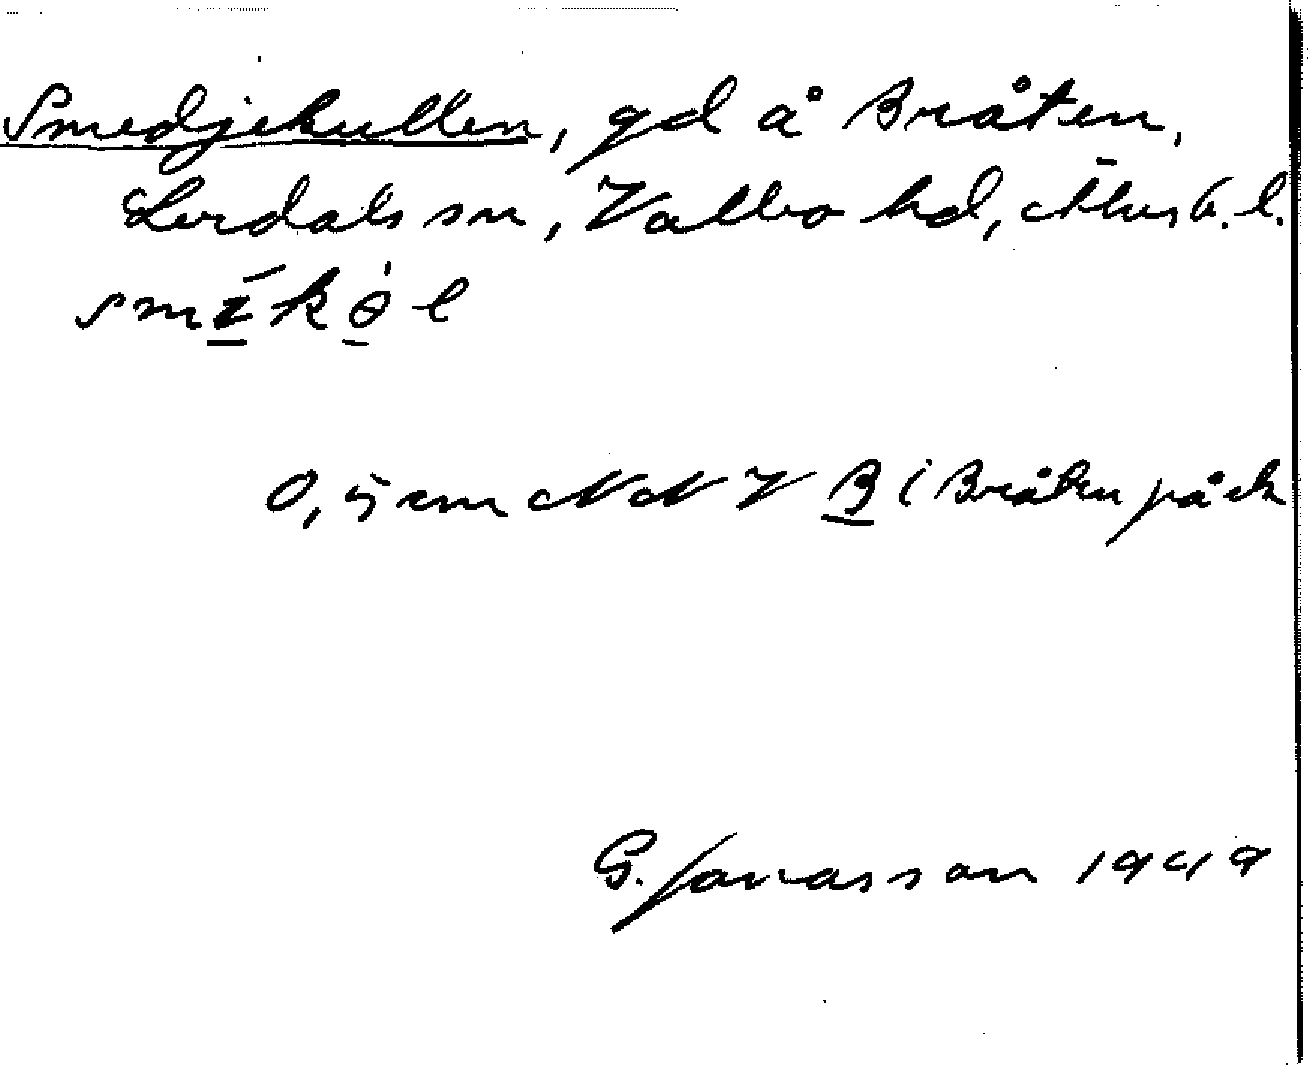 Smedjekullen, gd å Bråten,
Lerdals sn, Valbo hd, Älvsb. l.
0,5 cm NNV B i Bråten på ek
G. Jonasson 1949